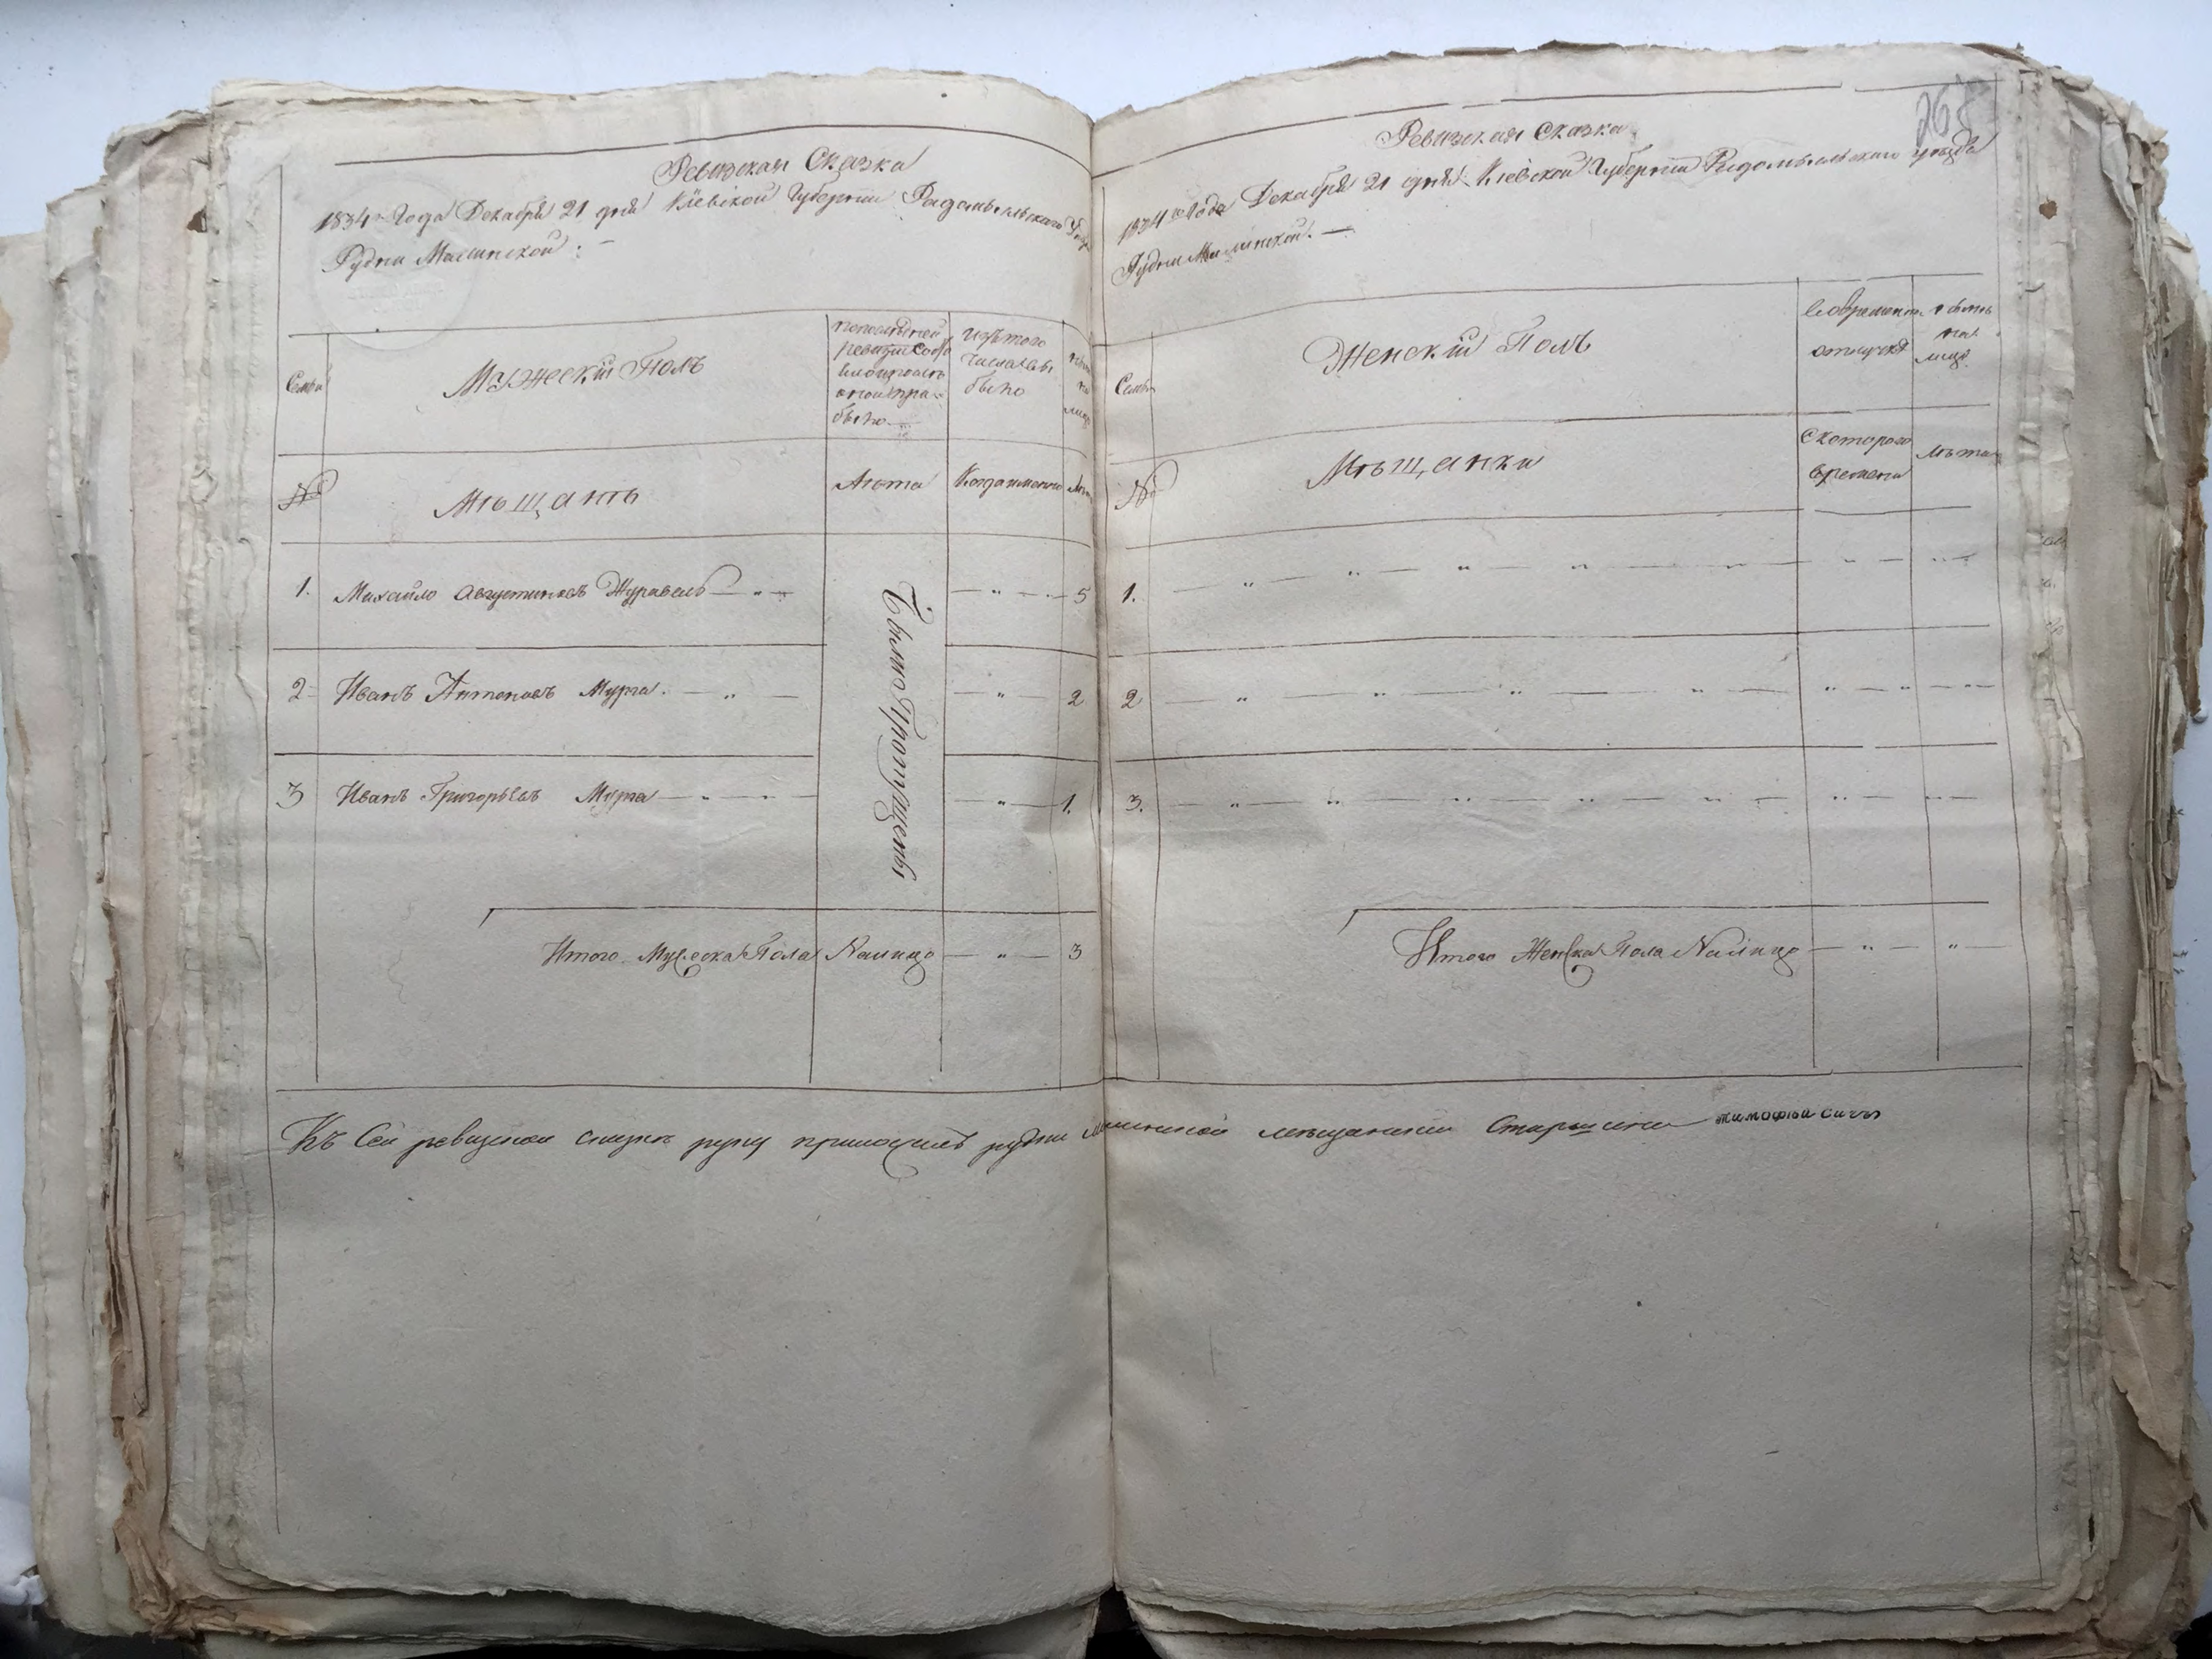 Ревизская Сказка
1834го Года Декабря 21 дня Кіевской Губерніи Радомысльскаго Уезда
Рудни Малинской: —
Семьи
Мужескій Полъ
попоследней
ревизіи состо
было
изътого
числа вы
было
ныне
на
лице
№
Мѣщанъ
Лѣта
Когда именно
Лѣта
1. Михайло Августиновъ Журавель — „ — — „ — 5
2 Иванъ Антоновъ Мурга. — „ — — „ — 2
3 Иванъ Григорьевъ Мурга — „ — — „ — 1.
Были Пропущены
Итого Мужеска Пола Налицо — „ — 3
265
Ревизская Сказка
1834го Года Декабря 21 дня Кіевской Губерніи Радомысльскаго уезда
Рудни Малинской. —
Семьи
Женскій Полъ
Вовременной
отлучке
ныне
на
лице
№
Мѣщанки
Скотораго
времени
лѣта
1. — „ — „ — „ — „ — „ — „ — „ —
2 — „ — „ — „ — „ — „ — „ — —
3. — „ — „ — „ — „ — „ — „ — „ — „ —
Итого Женска Пола Налицо — „ — „ —
Къ Сей ревизской сказке руку приложилъ рудни Малинской мещанскій Старшина тимофей сичъ